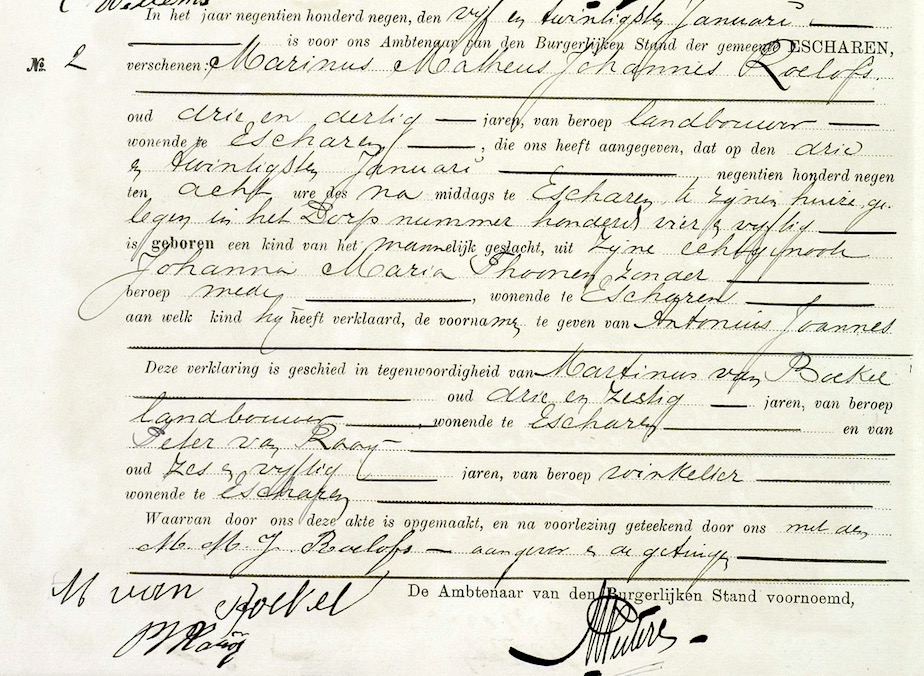 Willems
In het jaar negentien honderd negen, den vijf en twintigsten Januari
is voor ons Ambtenaar van den Burgerlijken Stand der gemeente ESCHAREN,
No. 2 verschenen: Marinus Matheus Johannes Roelofs.
oud drie en dertig jaren, van beroep landbouwer
wonende te Escharen, die ons heeft aangegeven, dat op den drie
en twintigsten Januari negentien honderd negen
ten acht ure des na middags te Escharen te zijnen huize ge-
legen in het Dorp nummer honderd vier en vijftig
is geboren een kind van het mannelijk geslacht, uit zijne echtgenoote
Johanna Maria Thoonen zonder
beroep mede, wonende te Escharen
aan welk kind hij heeft verklaard, de voornamen te geven van Antonius Joannes
Deze verklaring is geschied in tegenwoordigheid van Martinus van Boekel
oud drie en zestig jaren, van beroep
landbouwer, wonende te Escharen en van
Peter van Raaij
oud zes en vijftig jaren, van beroep winkelier
wonende te Escharen
Waarvan door ons deze akte is opgemaakt, en na voorlezing geteekend door ons met den
M. M. J. Roelofs aangever en de getuigen
De Ambtenaar van den Burgerlijken Stand voornoemd,
M van Boekel